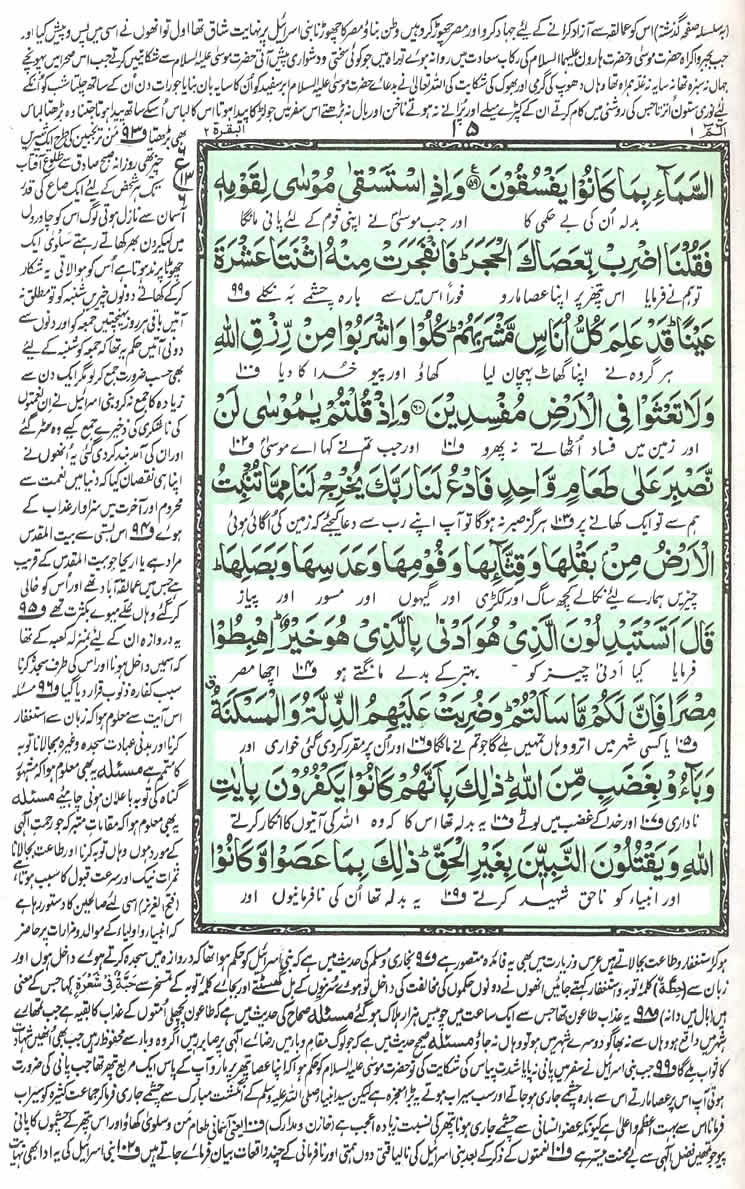 (بہ سلسلہ صفحہ گذشتہ) اس کو عمالقہ سے آزاد کرانے کے لئے جہاد کرو اور مصر چھوڑ کر وہیں وطن بناؤ مصر کا چھوڑنا بنی اسرائیل پر نہایت شاق تھا اول تو انھوں نے اسی میں پس و پیش کیا اور
جب بجبر و اکراہ حضرت موسیٰ و حضرت ہارون علیہما السلام کی رکاب سعادت میں روانہ ہوئے تو راہ میں جو کوئی سختی و دشواری پیش آتی حضرت موسیٰ علیہ السلام سے شکایتیں کرتے جب اس صحرا میں پہونچے
جہاں نہ سبزہ تھا نہ سایہ نہ غلہ ہمراہ تھا وہاں دھوپ کی گرمی اور بھوک کی شکایت کی اللہ تعالیٰ نے بدعائے حضرت موسیٰ علیہ السلام ابر سفید کو ان کا سایہ بان بنایا جو رات دن ان کے ساتھ چلتا شب کو انکے
لئے نوری ستون اترتا جس کی روشنی میں کام کرتے ان کے کپڑے میلے اور پرانے نہ ہوتے ناخن اور بال نہ بڑھتے اس سفر میں جو لڑکا پیدا ہوتا اس کا لباس اسکے ساتھ پیدا ہوتا جتنا وہ بڑھتا لباس
الٓمّٓ ۱
۱۵
البقرة ۲
السَّمَآءِ بِمَا كَانُوْا يَفْسُقُوْنَ ﴿۵۹﴾ وَاِذِ اسْتَسْقٰى مُوْسٰى لِقَوْمِهٖ
بدلہ اُن کی بے حکمی کا اور جب موسیٰ نے اپنی قوم کے لئے پانی مانگا
فَقُلْنَا اضْرِبْ بِّعَصَاكَ الْحَجَرَ ؕ فَانْفَجَرَتْ مِنْهُ اثْنَتَا عَشْرَةَ
تو ہم نے فرمایا اس پتھر پر اپنا عصا مارو فوراً اس میں سے بارہ چشمے بہ نکلے ف۹۹
عَيْنًا ؕ قَدْ عَلِمَ كُلُّ اُنَاسٍ مَّشْرَبَهُمْ ؕ كُلُوْا وَاشْرَبُوْا مِنْ رِّزْقِ اللّٰهِ
ہر گروہ نے اپنا گھاٹ پہچان لیا کھاؤ اور پیو خدا کا دیا ف۱۰۰
وَلَا تَعْثَوْا فِى الْاَرْضِ مُفْسِدِيْنَ ﴿۶۰﴾ وَاِذْ قُلْتُمْ يٰمُوْسٰى لَنْ
اور زمین میں فساد اُٹھاتے نہ پھرو ف۱۰۱ اور جب تم نے کہا اے موسیٰ ف۱۰۲
نَّصْبِرَ عَلٰى طَعَامٍ وَّاحِدٍ فَادْعُ لَنَا رَبَّكَ يُخْرِجْ لَنَا مِمَّا تُنْۢبِتُ
ہم سے تو ایک کھانے پر ف۱۰۳ ہرگز صبر نہ ہوگا تو آپ اپنے رب سے دعا کیجئے کہ زمین کی اگائی ہوئی
الْاَرْضُ مِنْۢ بَقْلِهَا وَقِثَّآئِهَا وَفُوْمِهَا وَعَدَسِهَا وَبَصَلِهَا ؕ
چیزیں ہمارے لئے نکالے کچھ ساگ اور ککڑی اور گیہوں اور مسور اور پیاز
قَالَ اَتَسْتَبْدِلُوْنَ الَّذِىْ هُوَ اَدْنٰى بِالَّذِىْ هُوَ خَيْرٌ ؕ اِهْبِطُوْا
فرمایا کیا ادنیٰ چیز کو بہتر کے بدلے مانگتے ہو ف۱۰۴ اچھا مصر
مِصْرًا فَاِنَّ لَكُمْ مَّا سَاَلْتُمْ ؕ وَضُرِبَتْ عَلَيْهِمُ الذِّلَّةُ وَالْمَسْكَنَةُ
ف۱۰۵ یا کسی شہر میں اترو وہاں تمہیں ملے گا جو تم نے مانگا ف۱۰۶ اور اُن پر مقرر کردی گئی خواری اور
وَبَآءُوْ بِغَضَبٍ مِّنَ اللّٰهِ ؕ ذٰلِكَ بِاَنَّهُمْ كَانُوْا يَكْفُرُوْنَ بِاٰيٰتِ
ناداری ف۱۰۷ اور خدا کے غضب میں لوٹے ف۱۰۸ یہ بدلہ تھا اس کا کہ وہ اللہ کی آیتوں کا انکار کرتے
اللّٰهِ وَيَقْتُلُوْنَ النَّبِيّٖنَ بِغَيْرِ الْحَقِّ ؕ ذٰلِكَ بِمَا عَصَوْا وَّكَانُوْا
اور انبیاء کو ناحق شہید کرتے ف۱۰۹ یہ بدلہ تھا اُن کی نافرمانیوں اور
بھی بڑھتا ف۹۳ من ترنجبین کی طرح ایک شیریں
چیز تھی روزانہ صبح صادق سے طلوع آفتاب
تک ہر شخص کے لئے ایک صاع کی قدر
آسمان سے نازل ہوتی لوگ اس کو چادروں
میں لیکر دن بھر کھاتے رہتے سلوٰی ایک
چھوٹا پرند ہوتا ہے اُس کو ہوا لاتی یہ شکار
کرکے کھاتے دونوں چیزیں شنبہ کو تو مطلق نہ
آتیں باقی ہر روز پہنچتیں جمعہ کو اور دنوں سے
دونی آتیں حکم یہ تھا کہ جمعہ کو شنبہ کے لئے
بھی حسب ضرورت جمع کرلو مگر ایک دن سے
زیادہ کا جمع نہ کرو بنی اسرائیل نے ان نعمتوں
کی ناشکری کی ذخیرے جمع کئے وہ سڑ گئے
اور ان کی آمد بند کردی گئی یہ انھوں نے
اپنا ہی نقصان کیا کہ دنیا میں نعمت سے
محروم اور آخرت میں سزاوار عذاب کے
ہوئے ف۹۴ اس بستی سے بیت المقدس
مراد ہے یا اریحا جو بیت المقدس کے قریب
ہے جس میں عمالقہ آباد تھے اور اُس کو خالی
کرگئے وہاں غلے میوے بکثرت تھے ف۹۵
یہ دروازہ ان کے لئے بمنزلہ کعبہ کے تھا
کہ اسمیں داخل ہونا اور اس کی طرف سجدہ کرنا
سبب کفارہ ذنوب قرار دیا گیا ف۹۶ مسئلہ
اس آیت سے معلوم ہوا کہ زبان سے استغفار
کرنا اور بدنی عبادت سجدہ وغیرہ بجالانا توبہ
کا متمم ہے مسئلہ یہ بھی معلوم ہوا کہ مشہور
گناہ کی توبہ با علان ہونی چاہئیے مسئلہ
یہ بھی معلوم ہوا کہ مقامات متبرکہ جو رحمت الٰہی
کے مورد ہوں وہاں توبہ کرنا اور طاعت بجالانا
ثمرات نیک اور سرعت قبول کا سبب ہوتا ہے
(فتح العزیز) اسی لئے صالحین کا دستور رہا ہے
کہ انبیاء و اولیاء کے موالد و مزارات پر حاضر
ہوکر استغفار و طاعت بجالاتے ہیں عرس و زیارت میں بھی یہ فائدہ متصور ہے ف۹۷ بخاری و مسلم کی حدیث میں ہے کہ بنی اسرائیل کو حکم ہوا تھا کہ دروازہ میں سجدہ کرتے ہوئے داخل ہوں اور
زبان سے (حِطَّةٌ) کلمہ توبہ و استغفار کہتے جائیں انھوں نے دونوں حکموں کی مخالفت کی داخل تو ہوئے سُرینوں کے بل گھسٹتے اور بجائے کلمہ توبہ کے تمسخر سے حَبَّةٌ فِیْ شَعْرَةٍ کہا جس کے معنی
ہیں (بال میں دانہ) ف۹۸ یہ عذاب طاعون تھا جس سے ایک ساعت میں چوبیس ہزار ہلاک ہوگئے مسئلہ صحاح کی حدیث میں ہے کہ طاعون پچھلی امتوں کے عذاب کا بقیہ ہے جب تمھارے
شہر میں واقع ہو وہاں سے نہ بھاگو دوسرے شہر میں ہو تو وہاں نہ جاؤ مسئلہ صحیح حدیث میں ہے کہ جو لوگ مقام وبا میں رضائے الٰہی پر صابر رہیں اگر وہ وبا سے محفوظ رہیں جب بھی انھیں شہادت
کا ثواب ملے گا ف۹۹ جب بنی اسرائیل نے سفر میں پانی نہ پایا شدت پیاس کی شکایت کی تو حضرت موسیٰ علیہ السلام کو حکم ہوا کہ اپنا عصا پتھر پر مارو آپ کے پاس ایک مربع پتھر تھا جب پانی کی ضرورت
ہوتی آپ اس پر عصا مارتے اس سے بارہ چشمے جاری ہوجاتے اور سب سیراب ہوتے یہ بڑا معجزہ ہے لیکن سید انبیا صلی اللہ علیہ وسلم کے انگشت مبارک سے چشمے جاری فرما کر جماعت کثیرہ کو سیراب
فرمانا اس سے بہت اعظم و اعلیٰ ہے کیونکہ عضو انسانی سے چشمے جاری ہونا پتھر کی نسبت زیادہ اعجب ہے (خازن و مدارک) ف۱۰۰ یعنی آسمانی طعام من و سلویٰ کھاؤ اور اس پتھر کے چشموں کا پانی
پیو جو تمھیں فضل الٰہی سے بے محنت میسر ہے ف۱۰۱ نعمتوں کے ذکر کے بعد بنی اسرائیل کی نالیاقتی دوں ہمتی اور نافرمانی کے چند واقعات بیان فرمائے جاتے ہیں ف۱۰۲ بنی اسرائیل کی یہ ادا بھی نہایت